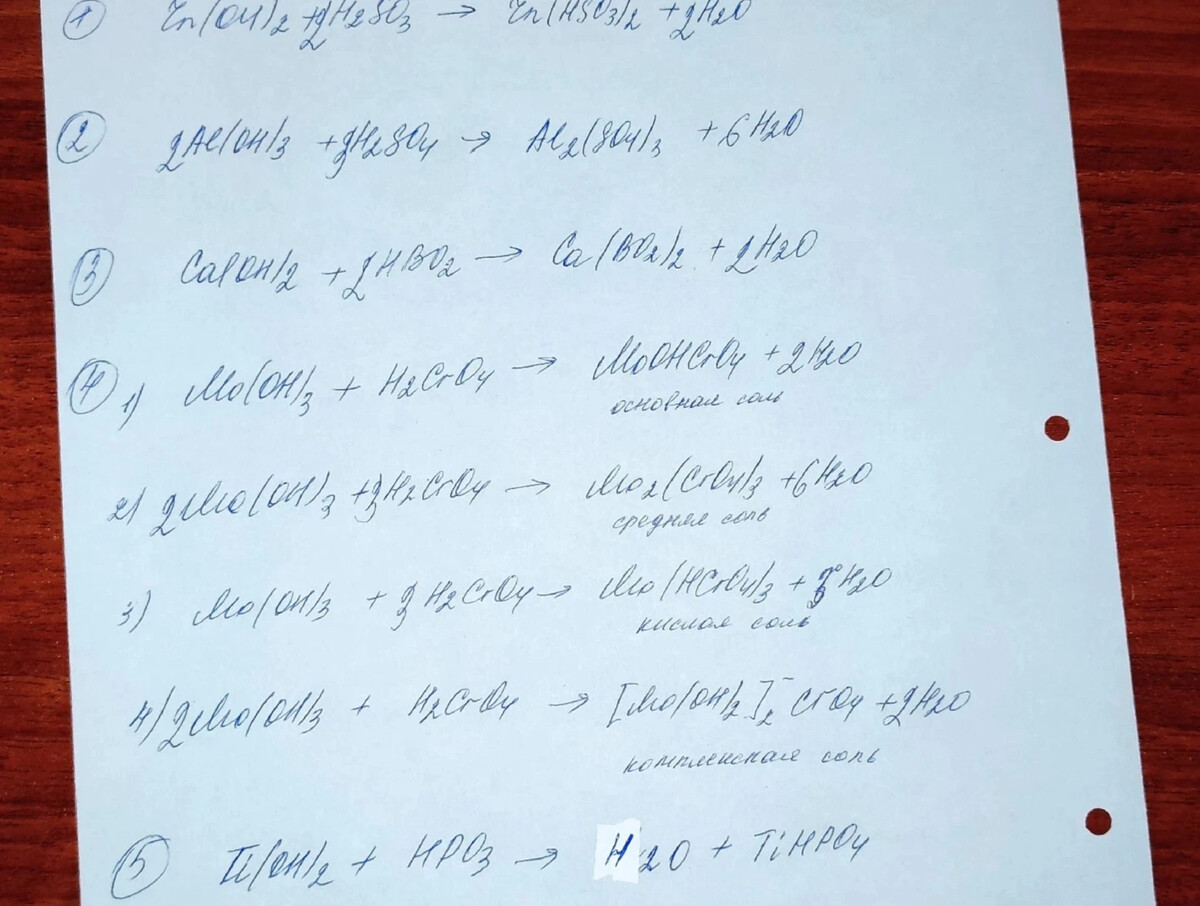 ① Zn(OH)2 + 2H2SO3 → Zn(HSO3)2 + 2H2O
② 2Al(OH)3 + 3H2SO4 → Al2(SO4)3 + 6H2O
③ Ca(OH)2 + 2HBO2 → Ca(BO2)2 + 2H2O
④ 1) Mo(OH)3 + H2CrO4 → MoOHCrO4 + 2H2O
основная соль
2) 2Mo(OH)3 + 3H2CrO4 → Mo2(CrO4)3 + 6H2O
средняя соль
3) Mo(OH)3 + 3H2CrO4 → Mo(HCrO4)3 + 3H2O
кислая соль
4) 2Mo(OH)3 + H2CrO4 → [Mo(OH)2]2 CrO4 + 2H2O
комплексная соль
⑤ Ti(OH)2 + HPO3 → H2O + TiHPO4